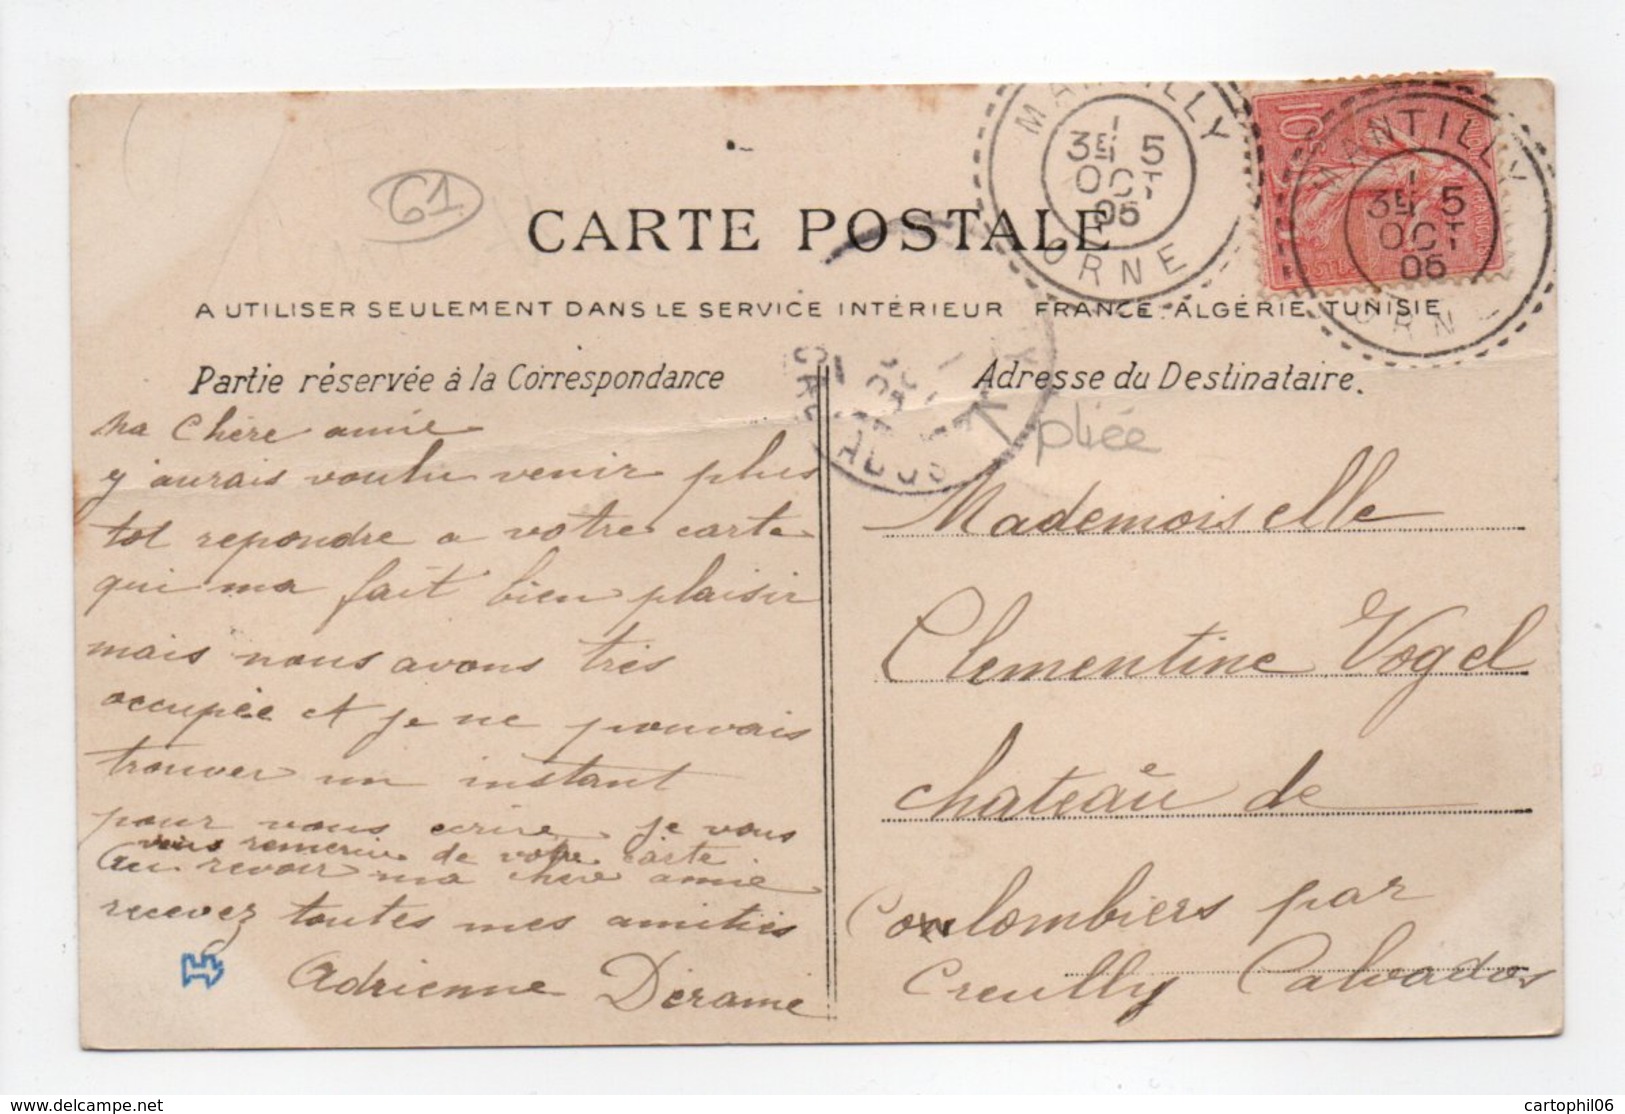 61
CARTE POSTALE
A UTILISER SEULEMENT DANS LE SERVICE INTÉRIEUR FRANCE-ALGÉRIE-TUNISIE
MANTILLY
3E 5
OCT
05
ORNE
10
MANTILLY
3E 5
OCT
05
ORNE
Partie réservée à la Correspondance
Ma Chère amie
y aurais voulu venir plus
tot repondre a votre carte
qui ma fait bien plaisir
mais nous avons très
occupée et je ne pouvais
trouver un instant
pour vous ecrire je vous
remercie de votre carte
Au revoir ma chere amie
recevez toutes mes amitiés
Adrienne Derame
Adresse du Destinataire.
pliée
Mademoiselle
Clementine Vogel
chateau de
Coulombiers par
Creully Calvados
cartophil06